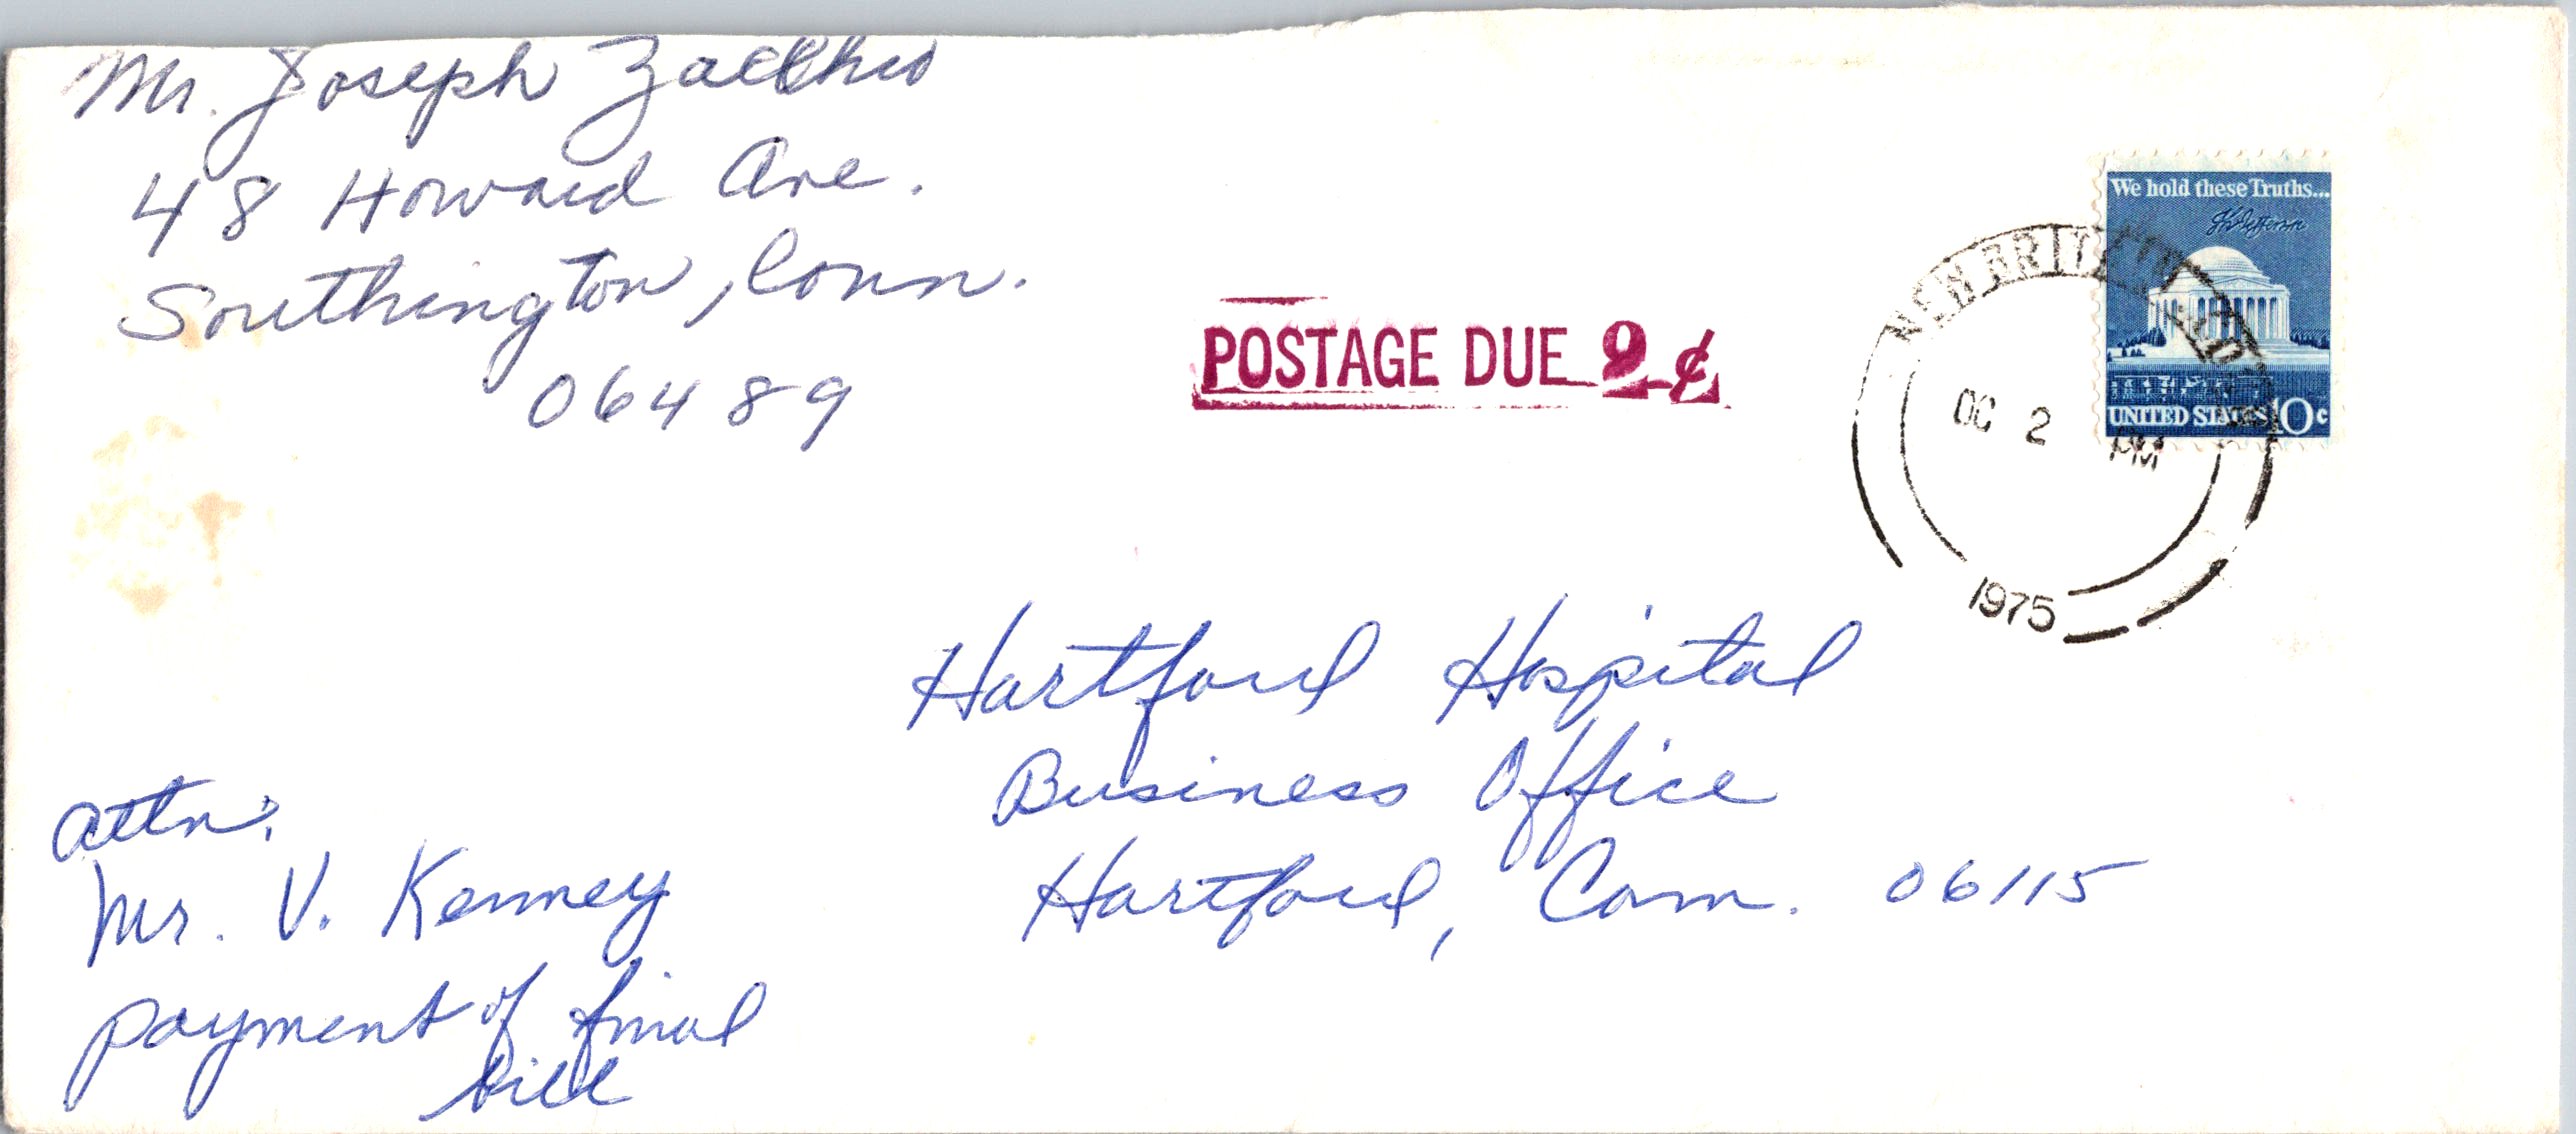 Mr. Joseph Zacchio
48 Howard Ave.
Southington, Conn.
06489
POSTAGE DUE 9 ¢
We hold these Truths...
Th Jefferson
UNITED STATES 10c
NEW BRITAIN
OC 2 PM
1975
Hartford Hospital
Business Office
Hartford, Conn. 06115
Attn:
Mr. V. Kenney
payment of final
bill